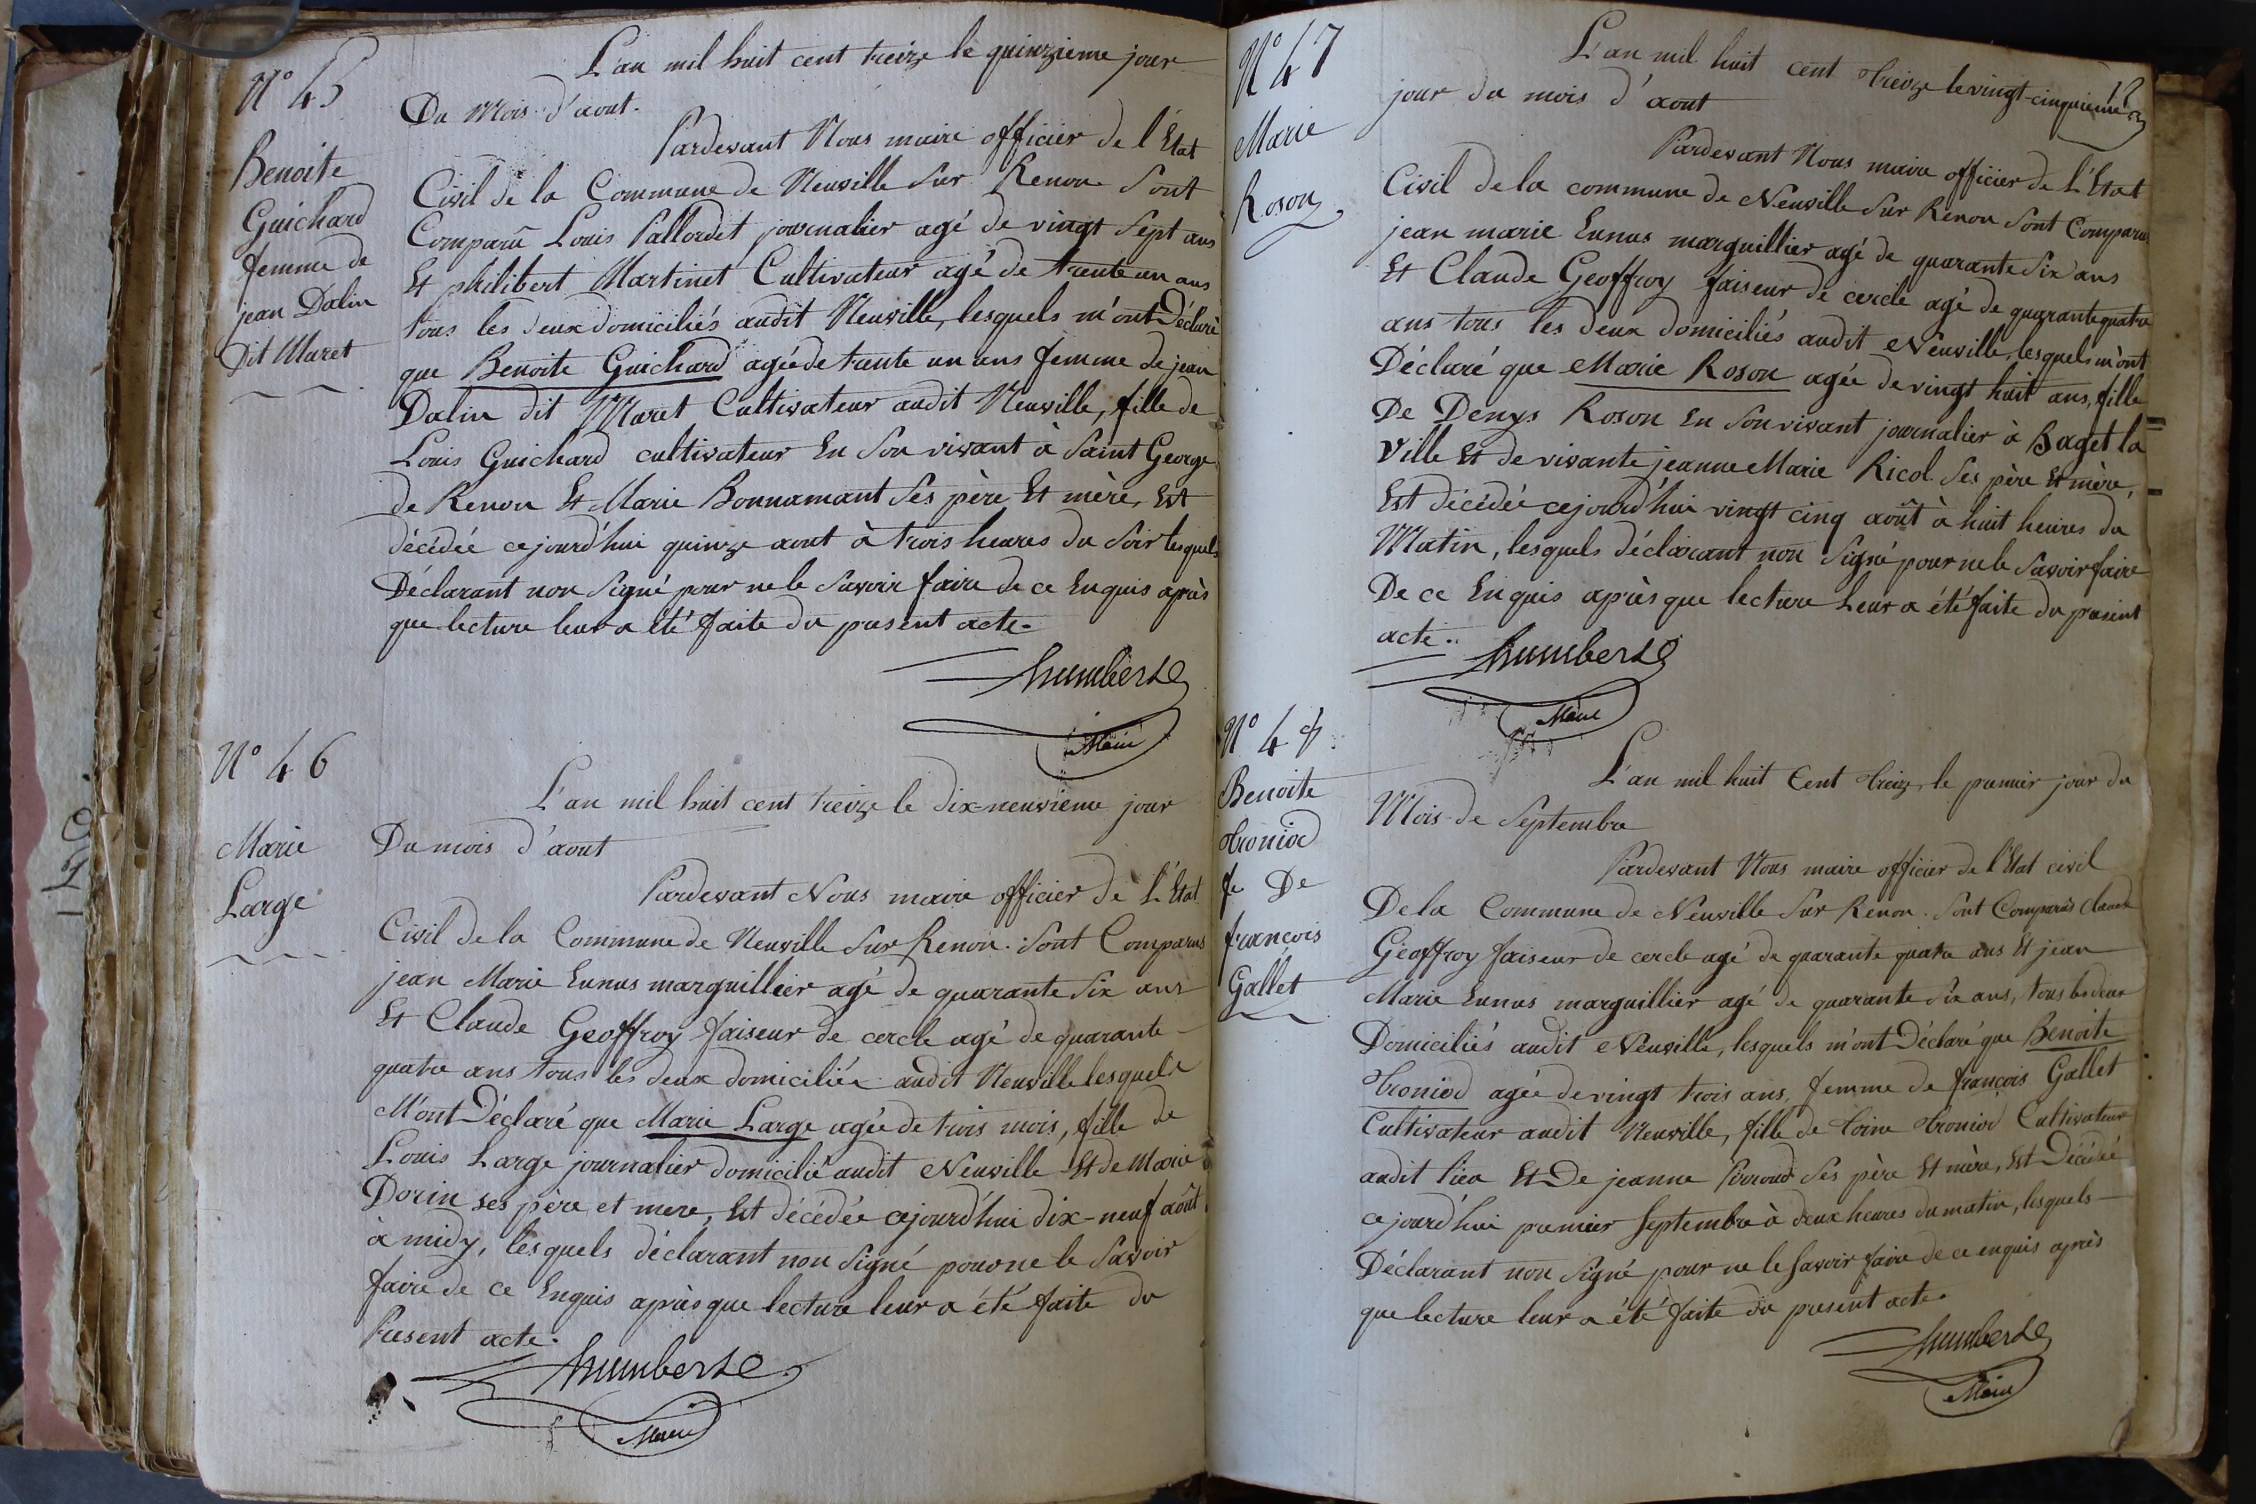 N° 45
Benoite
Guichard
femme de
jean Dalin
Dit Maret
L'an mil huit cent treize le quinzieme jour
Du Mois d'aout.
Pardevant Nous maire officier de l'Etat
Civil de la Commune de Neuville Sur Renon Sont
Comparu Louis Pallordet journalier agé de vingt Sept ans
Et philibert Martinet Cultivateur agé de trente un ans
tous les deux domiciliés audit Neuville, lesquels m'ont Déclaré
que Benoite Guichard agée de trente un ans femme de jean
Dalin dit Maret Cultivateur audit Neuville, fille de
Louis Guichard cultivateur En Son vivant à Saint George
de Renon Et Marie Bonnamant Ses père Et mère, Est
décédée cejourd'hui quinze aout à trois heures du Soir lesquels
Déclarant non Signé pour ne le Savoir faire de ce Enquis après
que lecture leur a été faite du present acte.
humbert
Maire
N° 46
Marie
Large
L'an mil huit cent treize le dix-neuvieme jour
Du mois d'aout
Pardevant Nous maire officier de L'Etat
Civil de la Commune de Neuville Sur Renon. Sont Comparus
jean Marie Eunus marguillier agé de quarante Six ans
Et Claude Geoffroy faiseur de cercle agé de quarante
quatre ans tous les deux domiciliés audit Neuville lesquels
M'ont Déclaré que Marie Large agée de trois mois, fille de
Louis Large journalier domicilié audit Neuville Et de Marie
Dorin ses père et mere, Est décédée cejourd'hui dix-neuf août
à midy, lesquels déclarant non Signé pour ne le Savoir
faire de ce Enquis après que lecture leur a été faite du
Present acte.
humbert
Maire
12
N° 47
Marie
Roson
L'an mil huit cent treize le vingt-cinquieme
jour du mois d'aout
Pardevant Nous maire officier de L'Etat
Civil de la commune de Neuville Sur Renon Sont Comparus
jean marie Eunus marguillier agé de quarante Six ans
Et Claude Geoffroy faiseur de cercle agé de quarante quatre
ans tous les deux domiciliés audit Neuville, lesquels m'ont
Déclaré que Marie Roson agée de vingt huit ans, fille
De Denys Roson En Son vivant journalier à Baget la
Ville Et de vivante jeanne Marie Ricol Ses père Et mère,
Est décédée cejourd'hui vingt cinq août à huit heures du
Matin, lesquels déclarant non Signé pour ne le Savoir faire
De ce Enquis après que lecture Leur a été faite du present
acte.
humbert
Maire
N° 48
Benoite
Troniod
fe De
francois
Gallet
L'an mil huit Cent treize, le premier jour du
Mois de Septembre
Pardevant Nous maire officier de l'Etat civil
De la Commune de Neuville Sur Renon. Sont Comparus Claude
Geoffroy faiseur de cercle agé de quarante quatre ans Et jean
Marie Eunus marguillier agé de quarante Six ans, tous les deux
Domiciliés audit Neuville, lesquels m'ont Déclaré que Benoite
Troniod agée de vingt trois ans, femme de francois Gallet
Cultivateur audit Neuville, fille de Troniod Cultivateur
audit lieu Et De jeanne Pirroud Ses père Et mère, Est Décédée
cejourd'hui premier Septembre à deux heures du matin, lesquels
Déclarant non Signé pour ne le Savoir faire de ce enquis après
que lecture leur a été faite du present acte.
humbert
Maire